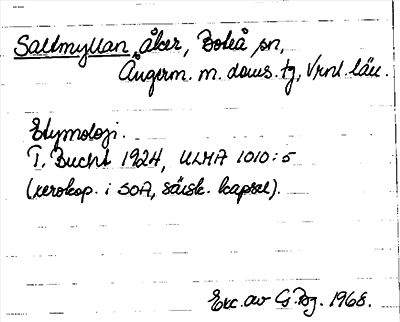 Saltmyllan, åker, Boteå sn,
Ångerm. m. doms. tg, Vrnl. län.
Etymologi.
T. Bucht 1924, ULMA 1010:5
(xerokop. i SOA, särsk. kapsel).
Exc. av G. Pzg. 1968.